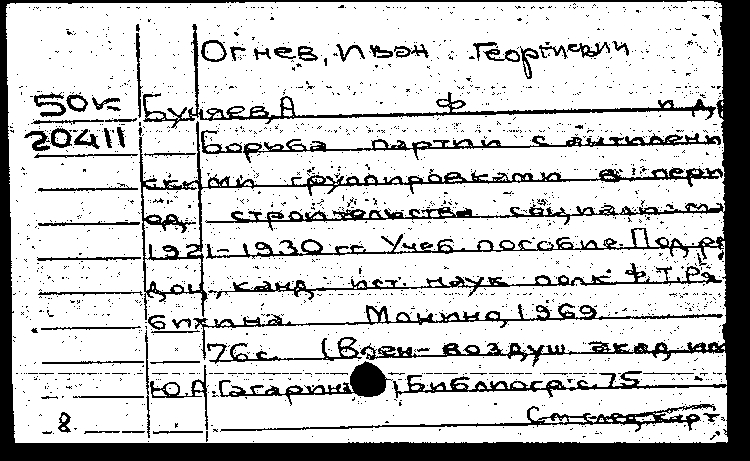 Огнев, Иван Георгиевич
50к Бучаев, А Ф и др
20411 Борьба партии с антилени
скими группировками в пери
од строительства социализма
1921-1930 гг Учеб. пособие. Под ре
доц., канд. ист. наук полк Ф.Т.Ря
бихина. Монино, 1969
76с. (Воен-воздуш. акад им
Ю.А.Гагарина) Библиогр: с.75
8 См след карт